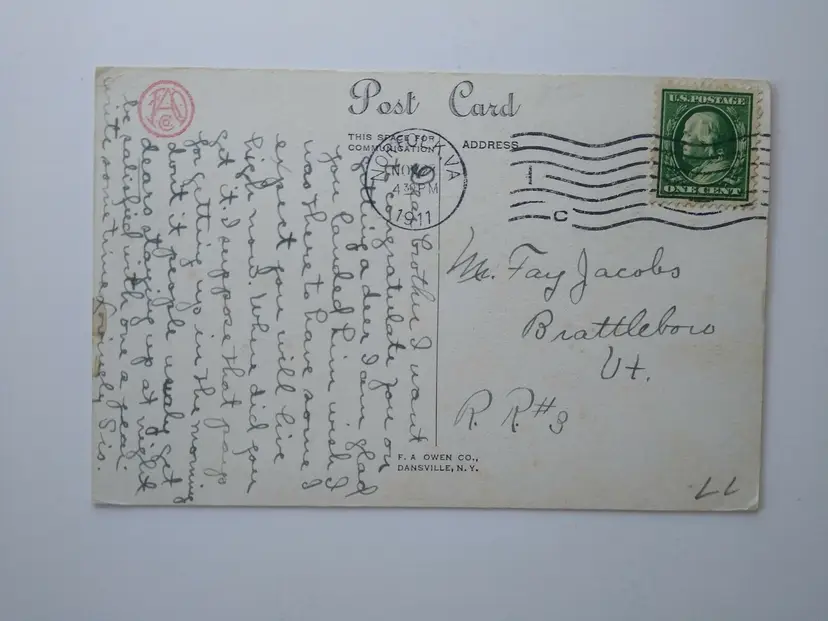 Post Card
THIS SPACE FOR
COMMUNICATION
ADDRESS
NORFOLK, VA
NOV
4 PM
1911
U.S. POSTAGE
ONE CENT
Dear Brother I want
to congratulate you on
getting a deer I am glad
you landed him wish I
was there to have some I
expect you will live
high now. Where did you
get it. I suppose that pays
for getting up in the morning
don't it people usualy get
dears staying up at night
be satisfied with one a year.
write sometime Lovingly Sis.
Mr. Fay Jacobs
Brattleboro
Vt.
R. R. #3
F. A. OWEN CO.,
DANSVILLE, N. Y.